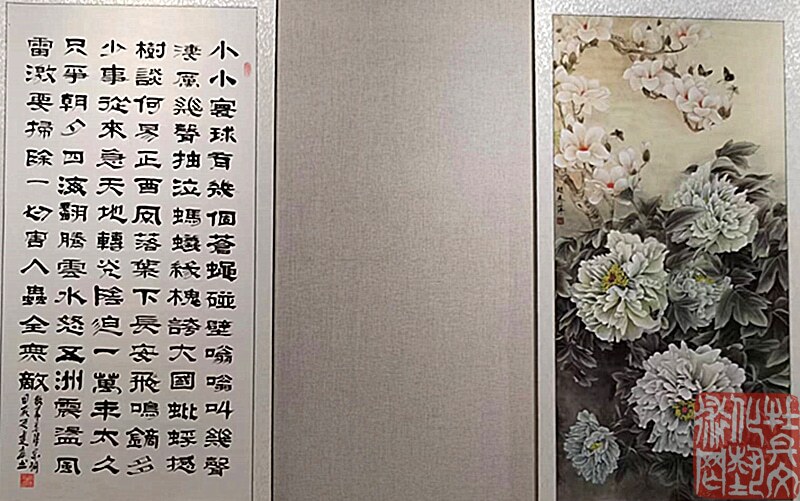 小小寰球有幾個蒼蠅碰壁嗡嗡叫幾聲
淒厲幾聲抽泣螞蟻緣槐誇大國蚍蜉撼
樹談何易正西風落葉下長安飛鳴鏑多
少事從來急天地轉光陰迫一萬年太久
只爭朝夕四海翻騰雲水怒五洲震盪風
雷激要掃除一切害人蟲全無敵